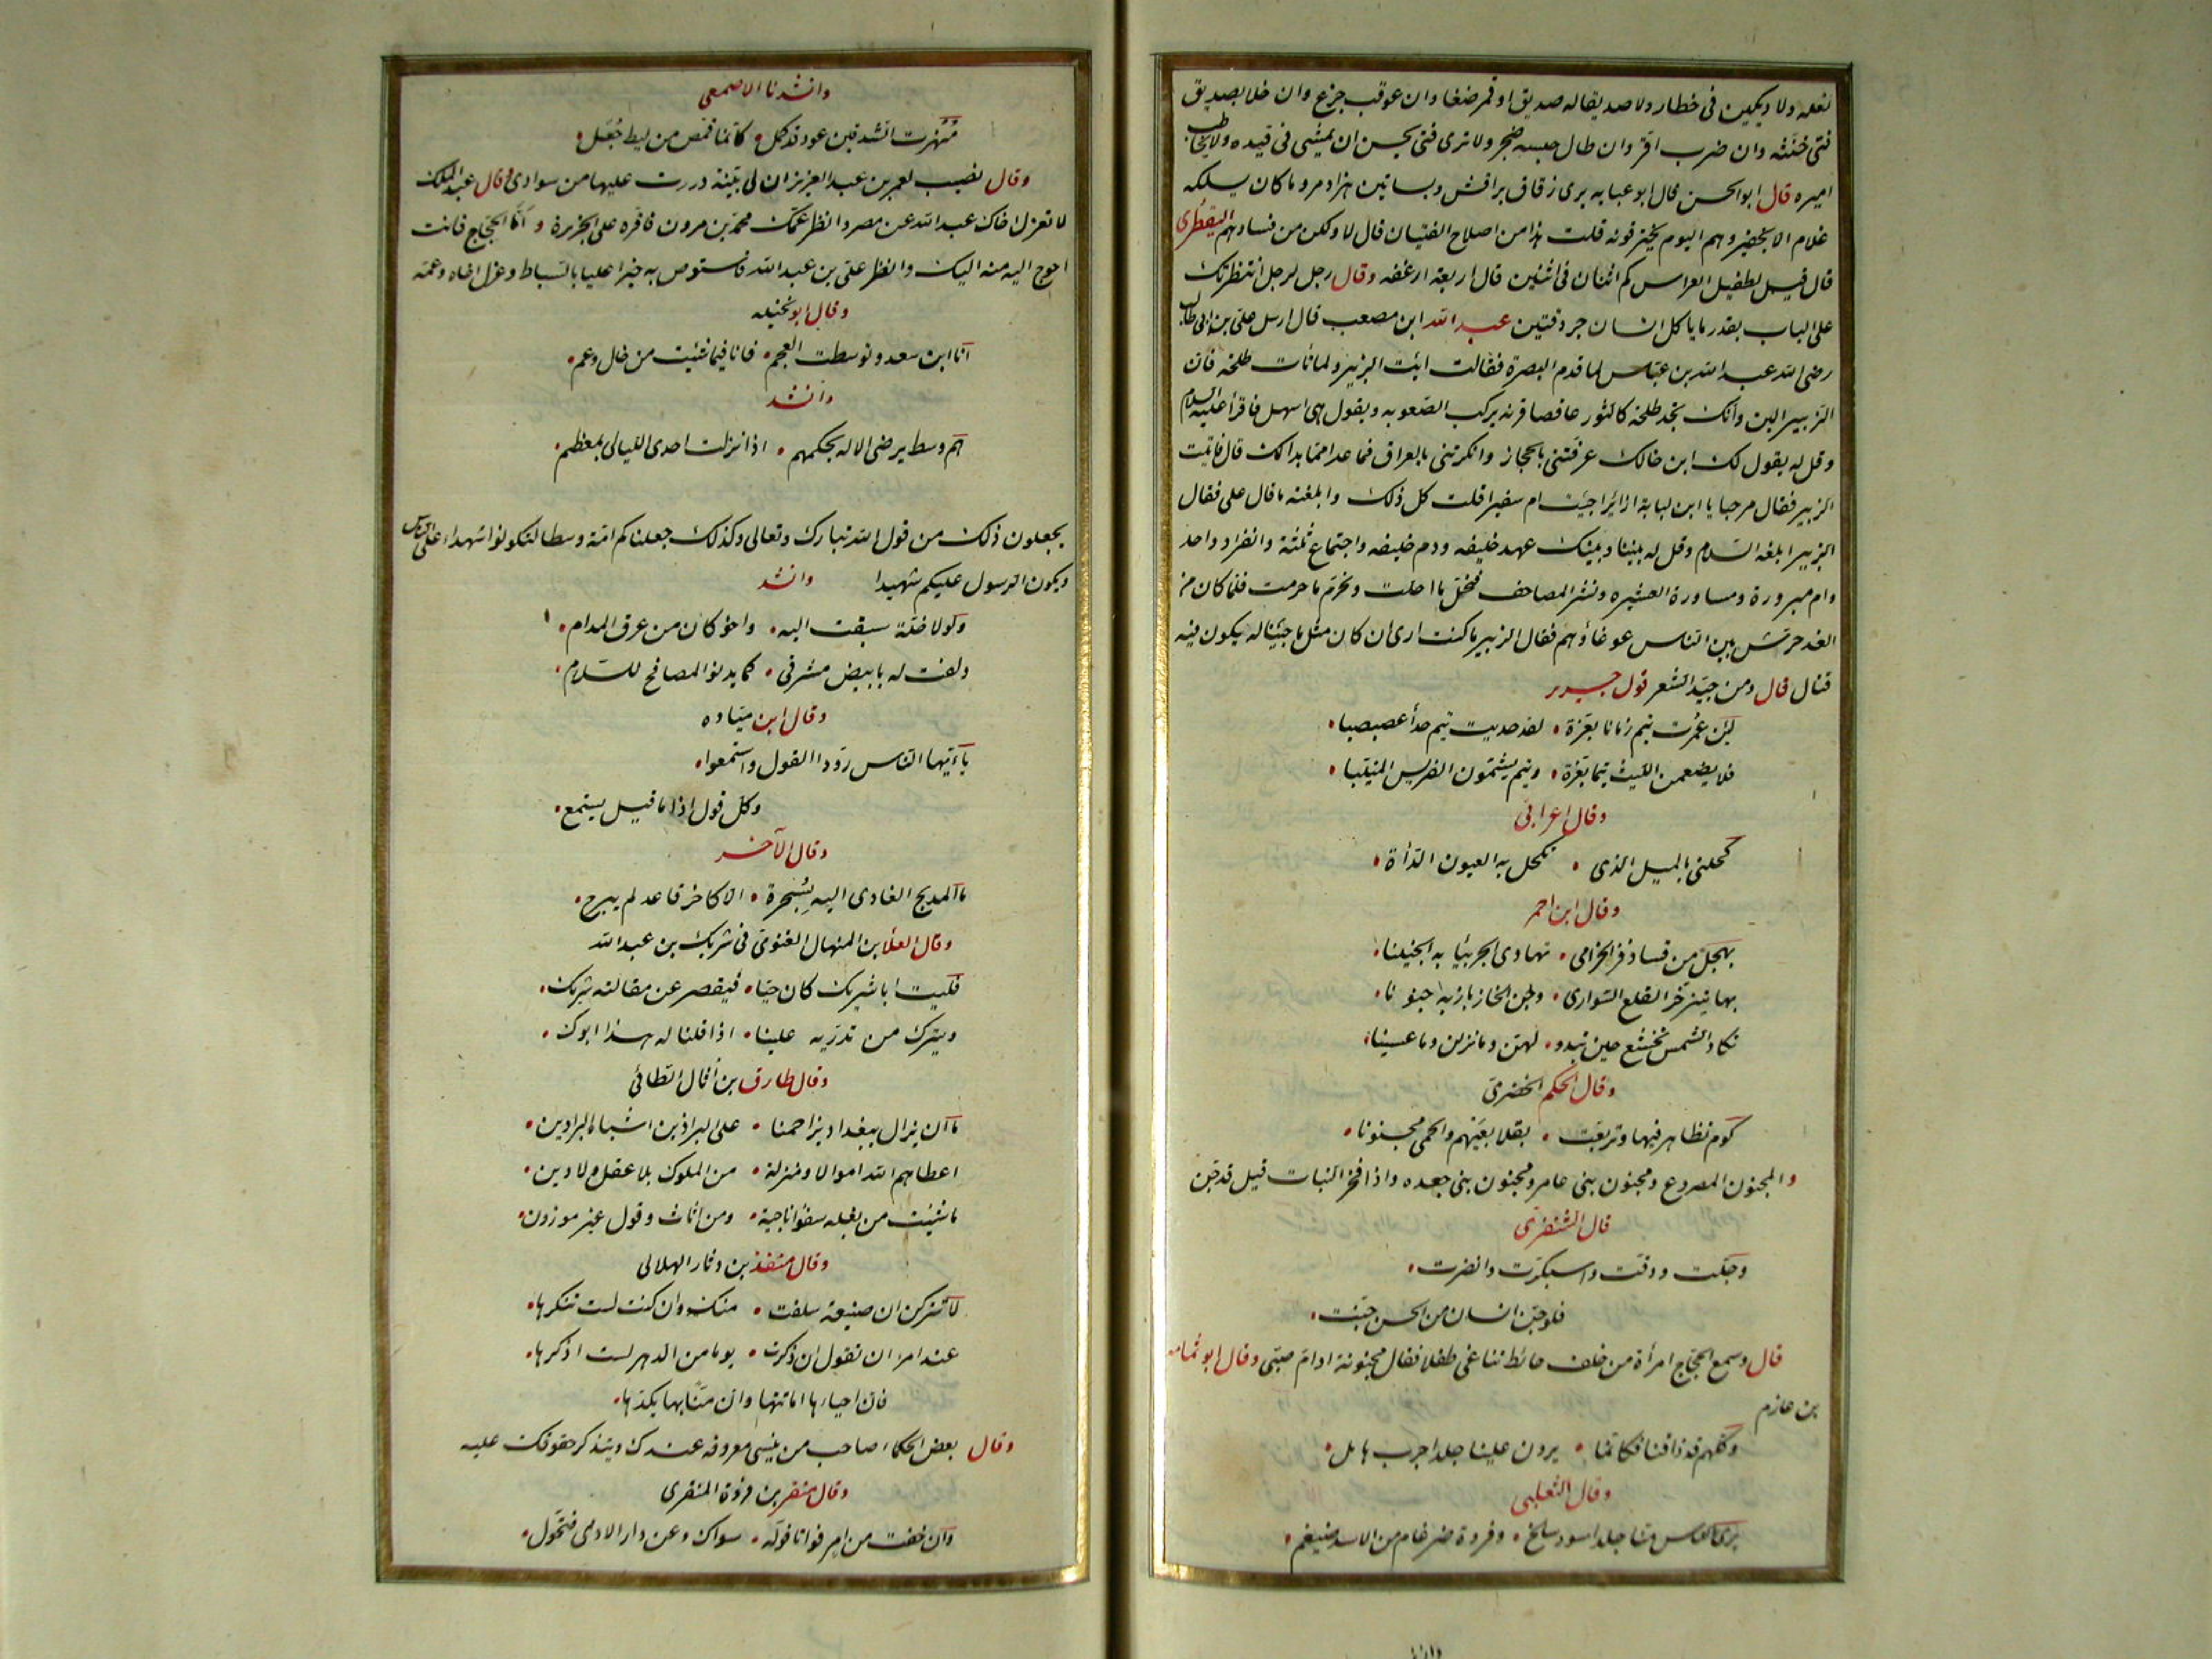 لغله ولا ديكين فى خطار ولا صديقا له صديق او قمر ضغا وان عوقب جزع وان خلا بصديق
فتى خنثه وان ضرب اقر وان طال حبسه ضجر ولا ترى فتى يحسن ان يمشى فى قيده ولا يخاطب
اميره قال ابو الحسن قال ابو عبايه يرى زقاق براقش وبساتين هزار مرد ما كان يسلكه
غلام الا بخفير وهم اليوم يخترقونه قلت هذا من اصلاح الفتيان قال لا ولكن من فسادهم اليقطرى
قال قيل لطفيل العراس كم اثنان فى اثنين قال اربعة ارغفه وقال رجل لرجل انتظرتك
على الباب بقدر ما ياكل انسان جردقتين عبد الله ابن مصعب قال ارسل على بن ابى طالب
رضى الله عبد الله بن عباس لما قدم البصرة فقال ائت الزبير ولا تأت طلحه فان
الزبير الين وانك تجد طلحة كالثور عاقصا قرنه يركب الصعوبه ويقول هى اسهل فاقرأ عليه السلام
وقل له يقول لك ابن خالك عرفتنى بالحجاز وانكرتنى بالعراق فما عدا مما بدا لك قال فاتيت
الزبير فقال مرحبا يا ابن لبابة ازائرا جئت ام سفيرا قلت كل ذلك وابلغته ما قال على فقال
الزبير ابلغه السلام وقل له بيننا وبينك عهد خليفه ودم خليفه واجتماع ثلثة وانفراد واحد
وام مبرورة ومساورة العشيره ونشر المصاحف فنحل ما احلت ونحرم ما حرمت فلما كان من
الغد حرش بين الناس غوغاؤهم فقال الزبير ما كنت ارى ان كان مثل ما جئنا له يكون فيه
قتال قال ومن جيد الشعر قول جرير
لئن عمرت تيم زمانا بغزة • لقد حديت تيم حداً عصبصبا •
فلا يضغمن الليث تيما بغزة • وتيم يشمون الفريس المنيبا •
وقال اعرابى
كحلنى بالميل الذى • تكحل به العيون الدأة •
وقال ابن احمر
بهجل من قسا ذفر الخزامى • تهادى الجربيا به الحنينا •
بها تينزخر القلع السوارى • وجن الخازباز به جنونا •
تكاد الشمس تخشع حين تبدو • لهن وما نزلن وما عسينا •
وقال الحكم الخضرى
كوم تظاهر نيها وتربعت • بقلا بعيهم والحمى مجنونا •
والمجنون المصروع ومجنون بنى عامر ومجنون بنى جعده واذا فخر النبات قيل قد جن
قال الشنفرى
وجلت ودقت واسبكرت وانضرت •
فلو جن انسان من الحسن جنت •
قال وسمع الحجاج امرأة من خلف حائط تناغى طفلا فقال مجنونة او ام صبى وقال ابو ثمامه
بن عازم
وكلهم قد ذاقنا فكانما • يرون علينا جلد اجرب هامل •
وقال التغلبى
يرى الناس منا جلد اسود سالخ • وفروة ضرغام من الاسد ضيغم •
وانشدنا الاصمعى
منهرت الشدقين عود قد كمل • كانما قمص من ليط جعل •
وقال نصيب لعمر بن عبد العزيز ان لى بنية ذررت عليها من سوادى وقال عبد الملك
لا تعزل اخاك عبد الله عن مصر وانظر عمك محمد بن مرون فاقره على الجزيرة واما الحجاج فانت
احوج اليه منه اليك وانظر على بن عبد الله فاستوص به خيرا عليا بالسياط وعزل اخاه وعمه
وقال ابو نخيله
انا ابن سعد وتوسطت العجم • فانا فيما شئت من خال وعم •
وانشد
هم وسط يرضى الاله بحكمهم • اذا نزلت احدى الليالى بمعظم •
يجعلون ذلك من قول الله تبارك وتعالى وكذلك جعلناكم امة وسطا لتكونوا شهداء على الناس
ويكون الرسول عليكم شهيدا وانشد
ولولا خلة سبقت اليه • واخو كان من عرق المدام •
دلفت له بابيض مشرفى • كما يدنو المصافح للسلام •
وقال ابن مياده
يا ايها الناس رووا القول واستمعوا •
وكل قول اذا ما قيل يستمع •
وقال الآخر
ما المدلج الغادى اليه بسحرة • الا كاخر قاعد لم يبرح •
وقال العلا بن المنهال الغنوى فى شريك بن عبد الله
فليت ابا شريك كان حيا • فيقصر عن مقالته شريك •
ويترك من تدريه علينا • اذا قلنا له هذا ابوك •
وقال طارق بن أثال الطائى
ما ان يزال ببغداد يزاحمنا • على البراذين اشباه البراذين •
اعطاهم الله اموالا ومنزلة • من الملوك بلا عقل ولا دين •
ما شئت من بغله سفوا ناجية • ومن اثاث وقول غير موزون •
وقال منقذ بن دثار الهلالى
لا تتركن ان صنيعة سلفت • منك وان كنت لست تنكرها •
عند امرء ان تقول ان ذكرت • يوما من الدهر لست اذكرها •
فان احياءها اماتتها وان منا بها يكدرها •
وقال بعض الحكماء صاحب من ينسى معروفه عندك ويتذكر حقوقك عليه
وقال منقر بن فروة المنقرى
وان خفت من امر فواتا فوله • سواك وعن دار الاذى فتحول •